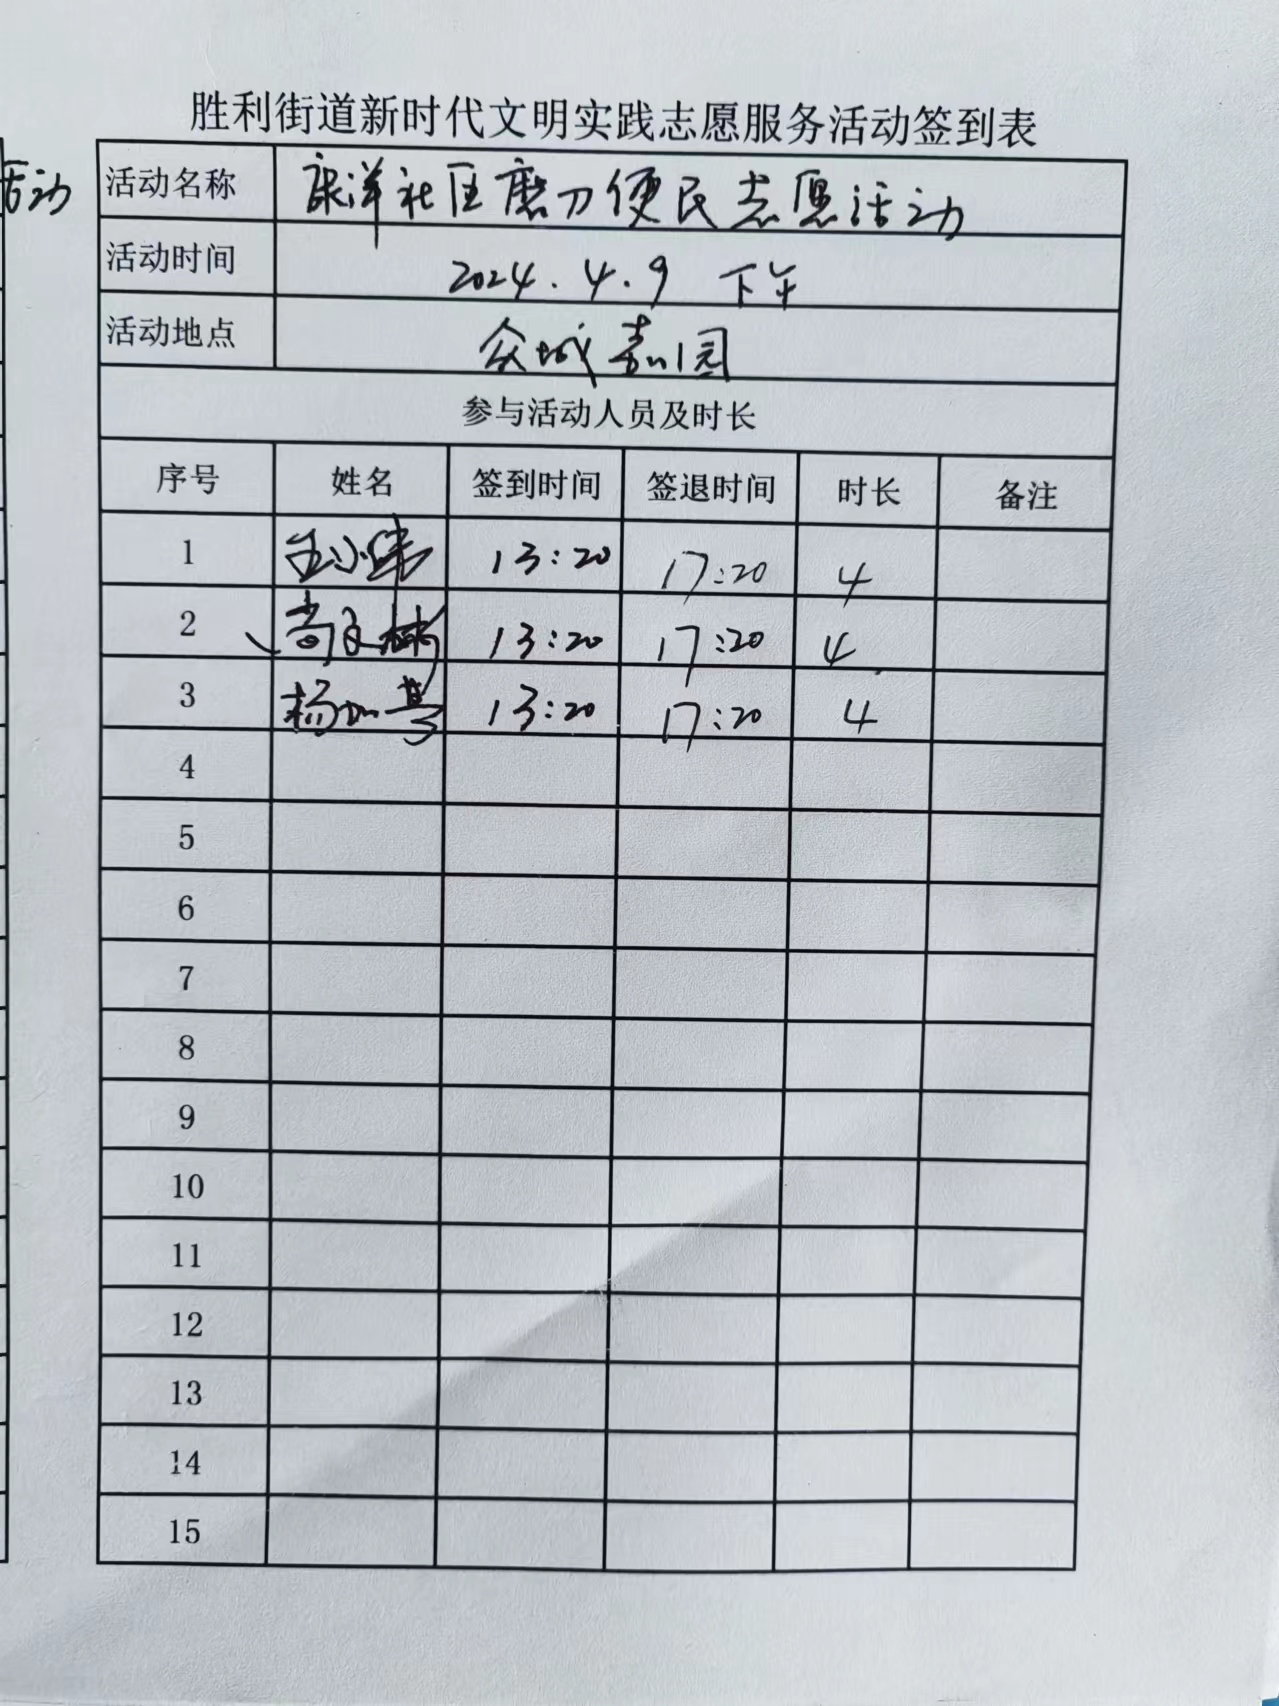 胜利街道新时代文明实践志愿服务活动签到表
活动
活动名称 康洋社区磨刀便民志愿活动
活动时间 2024.4.9 下午
活动地点 众城嘉园
参与活动人员及时长
序号 姓名 签到时间 签退时间 时长 备注
1 13:20 17:20 4
2 13:20 17:20 4
3 杨 13:20 17:20 4
4
5
6
7
8
9
10
11
12
13
14
15